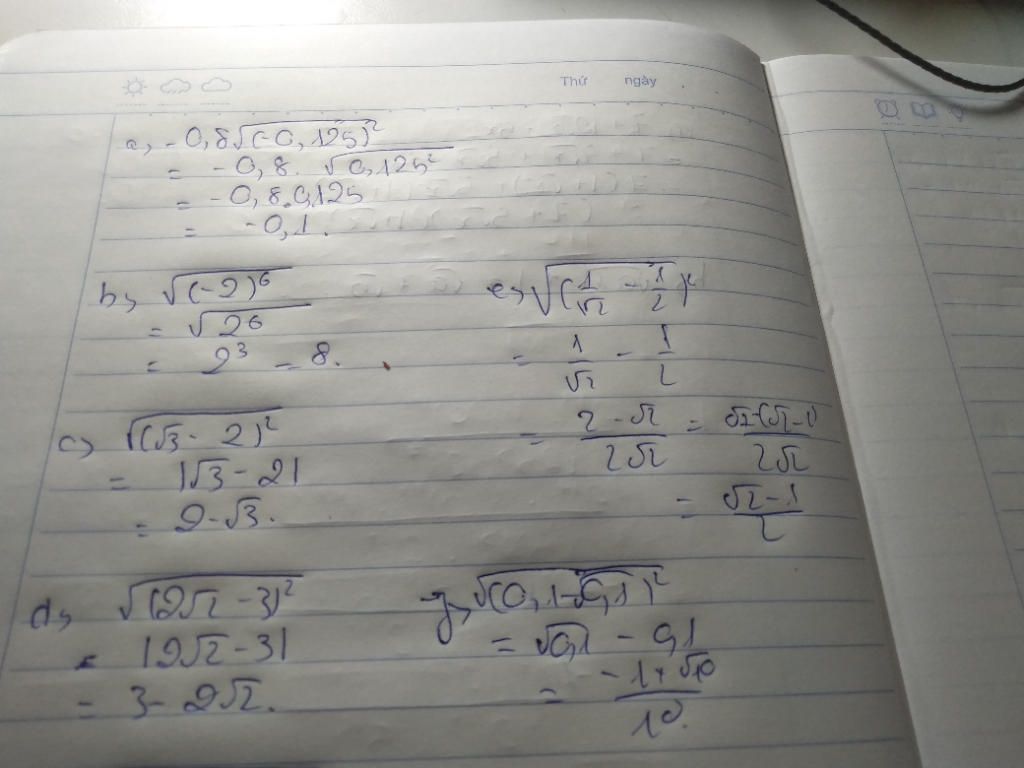 Thứ ngày
a, -0,8√(-0,125)²
= -0,8. √0,125²
= -0,8.0,125
= -0,1.
b, √(-2)⁶
= √2⁶
= 2³ = 8.
c) √(√3 - 2)²
= |√3 - 2|
= 2-√3.
d, √(2√2 - 3)²
= |2√2 - 3|
= 3 - 2√2.
e, √(1/√2 - 1/2)²
= 1/√2 - 1/2
= (2 - √2)/(2√2) = (√2(√2-1))/(2√2)
= (√2 - 1)/2
g, √(0,1-√0,1)²
= √0,1 - 0,1
= (-1+√10)/10.